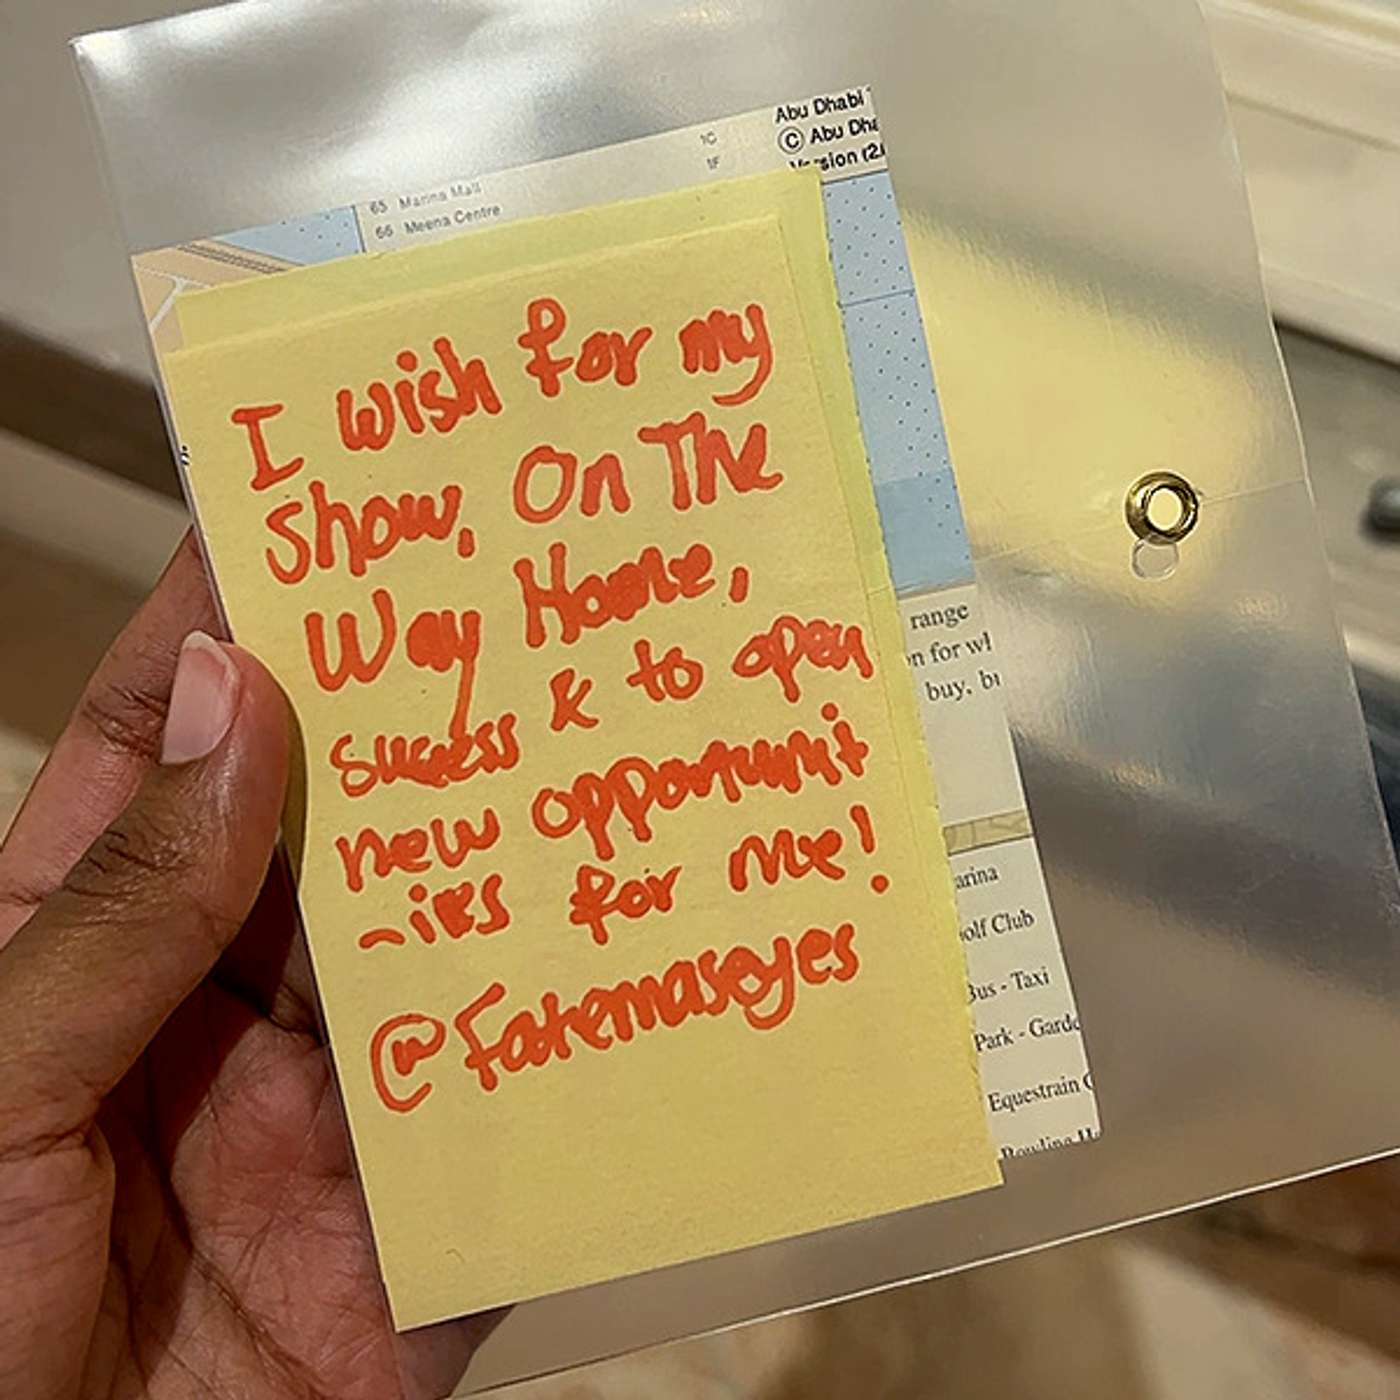 Abu Dhabi
© Abu Dha
Version (2.
1C
1F
65 Marina Mall
66 Meena Centre
I wish for my
Show, On The
Way Home,
success & to open
new opportunit
-ies for me!
@Fatemaseyes
range
on for wh
buy, bu
arina
olf Club
Bus - Taxi
Park - Garde
Equestrian C
Bowling